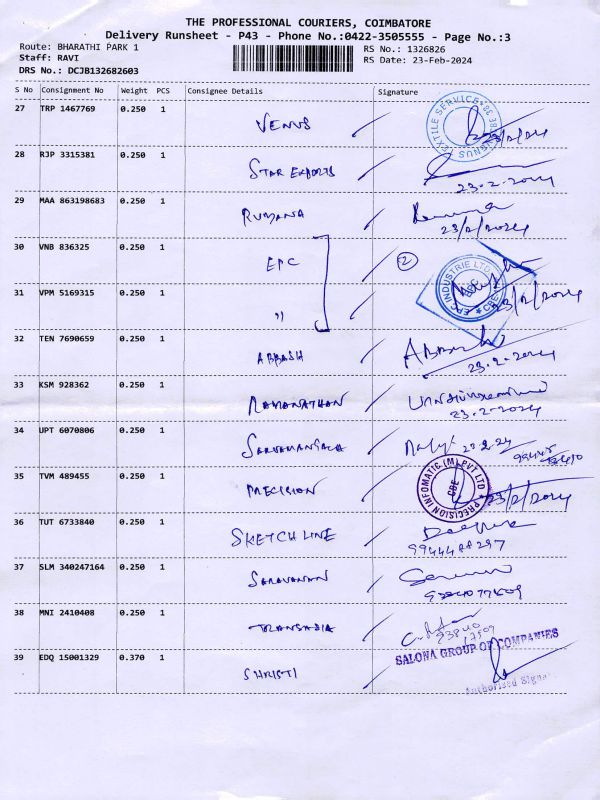 THE PROFESSIONAL COURIERS, COIMBATORE
Delivery Runsheet - P43 - Phone No.:0422-3505555 - Page No.:3
Route: BHARATHI PARK 1 RS No.: 1326826
Staff: RAVI RS Date: 23-Feb-2024
DRS No.: DCJB132682603
S No Consignment No Weight PCS Consignee Details Signature
27 TRP 1467769 0.250 1 VENUS
28 RJP 3315381 0.250 1 STAR EXPORTS 23-2-2024
29 MAA 863198683 0.250 1 RUBANA 23/2/2024
30 VNB 836325 0.250 1 EPC 2
EPC INDUSTRIE LTD CBE
31 VPM 5169315 0.250 1 " 23/2/2024
32 TEN 7690659 0.250 1 ABBASH 23-2-2024
33 KSM 928362 0.250 1 RAMANATHAN 23-2-2024
34 UPT 6070806 0.250 1 SARVAMANGALA 23-2-24
35 TVM 489455 0.250 1 PRECISION 23/2/2024
PRECISION INFOMATIC (M) PVT LTD CBE
36 TUT 6733840 0.250 1 SKETCH LINE
37 SLM 340247164 0.250 1 SARAVANAN
38 MNI 2410408 0.250 1 TRANSASIA
SALONA GROUP OF COMPANIES
39 EDQ 15001329 0.370 1 SHRISTI
Authorised